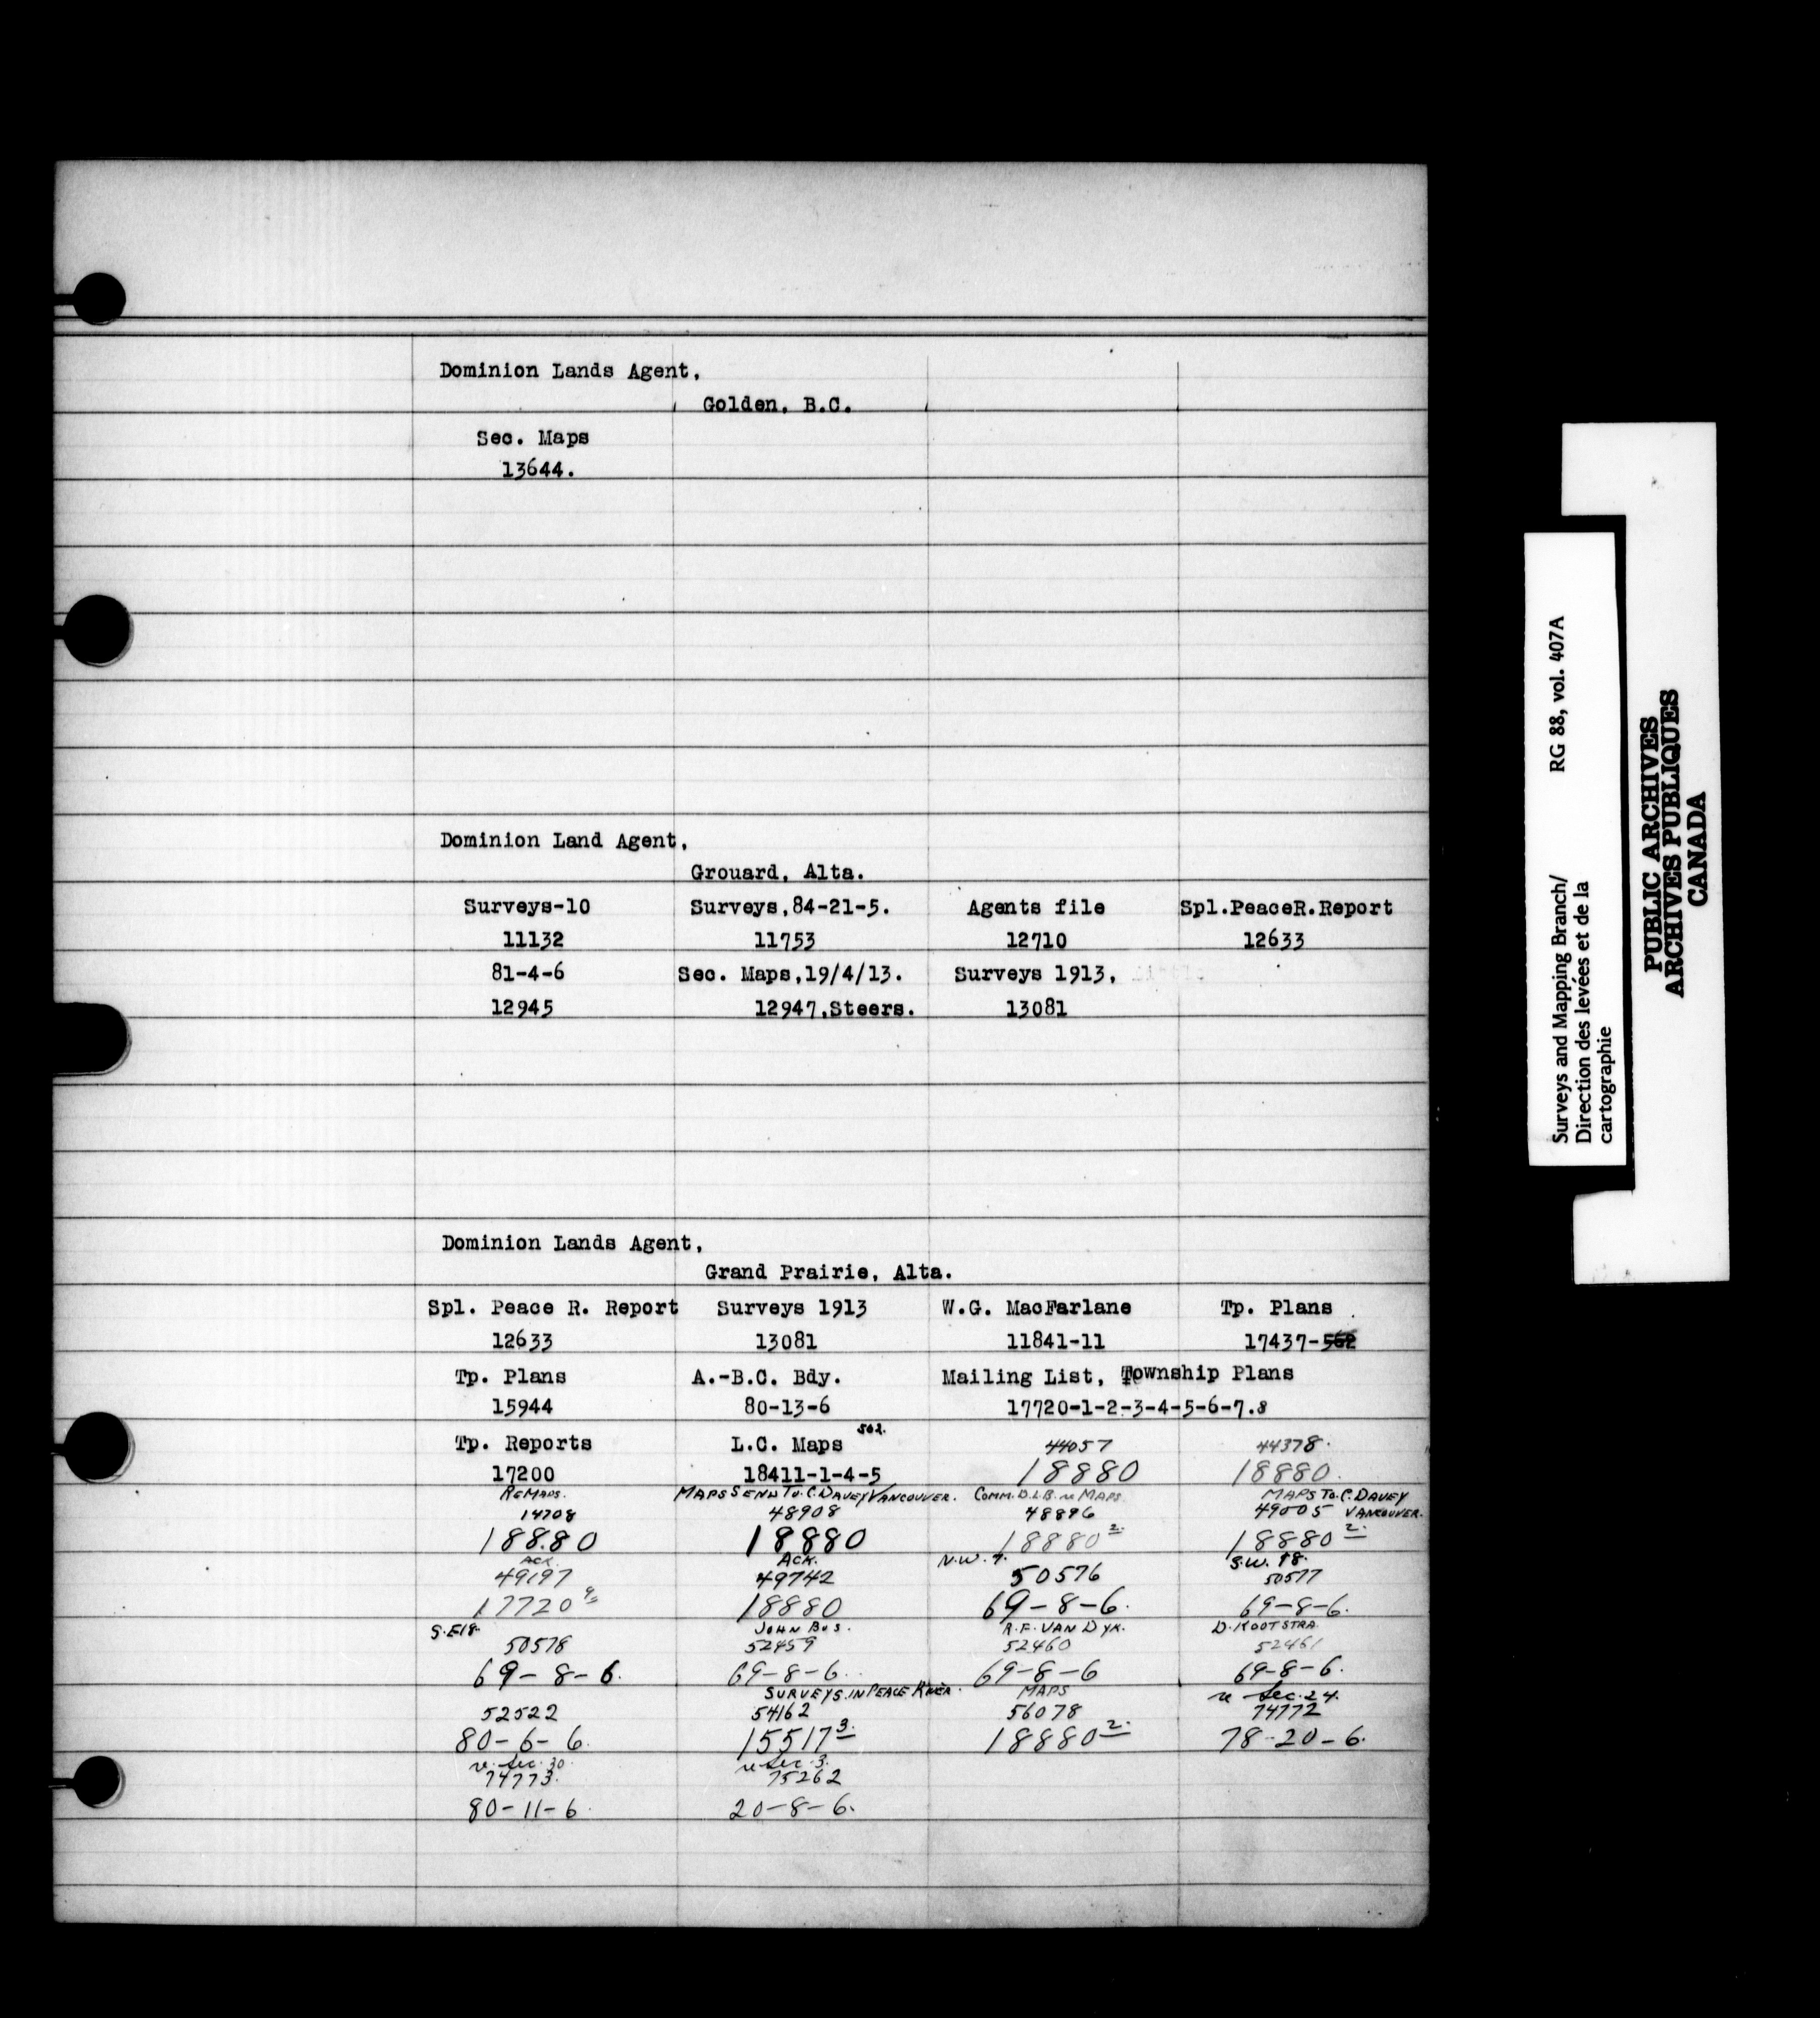 Dominion Lands Agent,
Golden, B.C.
Sec. Maps
13644.
Dominion Land Agent,
Grouard, Alta.
Surveys-10 Surveys,84-21-5. Agents file Spl.PeaceR.Report
11132 11753 12710 12633
81-4-6 Sec. Maps,19/4/13. Surveys 1913,
12945 12947,Steers. 13081
Dominion Lands Agent,
Grand Prairie, Alta.
Spl. Peace R. Report Surveys 1913 W.G. MacFarlane Tp. Plans
12633 13081 11841-11 17437-562
Tp. Plans A.-B.C. Bdy. Mailing List, Township Plans
15944 80-13-6 17720-1-2-3-4-5-6-7.8
502.
Tp. Reports L.C. Maps 44057 44378.
17200 18411-1-4-5 18880 18880.
Re Maps. MAPS SEND TO. C. DAVEY VANCOUVER. COMM. D.L.B. re MAPS MAPS TO. C. DAVEY
14708 48908 48896 49005 VANCOUVER.
18880 18880 18880 2. 18880 2.
ACK. ACK. N.W. 7. S.W. 18.
49197 49742 50576 50577
17720 18880 69-8-6. 69-8-6.
S.E 18. JOHN BUS. R.F. VAN DYK. D. KOOTSTRA.
50578 52459 52460 52461
69-8-6. 69-8-6. 69-8-6 69-8-6.
SURVEYS. IN PEACE RIVER. MAPS re Sec. 24.
52522 54162 56078 74772
80-6-6. 15517 3. 18880 2. 78-20-6.
re. Sec. 30. re Sec. 3.
74773. 75262
80-11-6. 20-8-6.
Surveys and Mapping Branch/ RG 88, vol. 407A
Direction des levées et de la
cartographie
PUBLIC ARCHIVES
ARCHIVES PUBLIQUES
CANADA